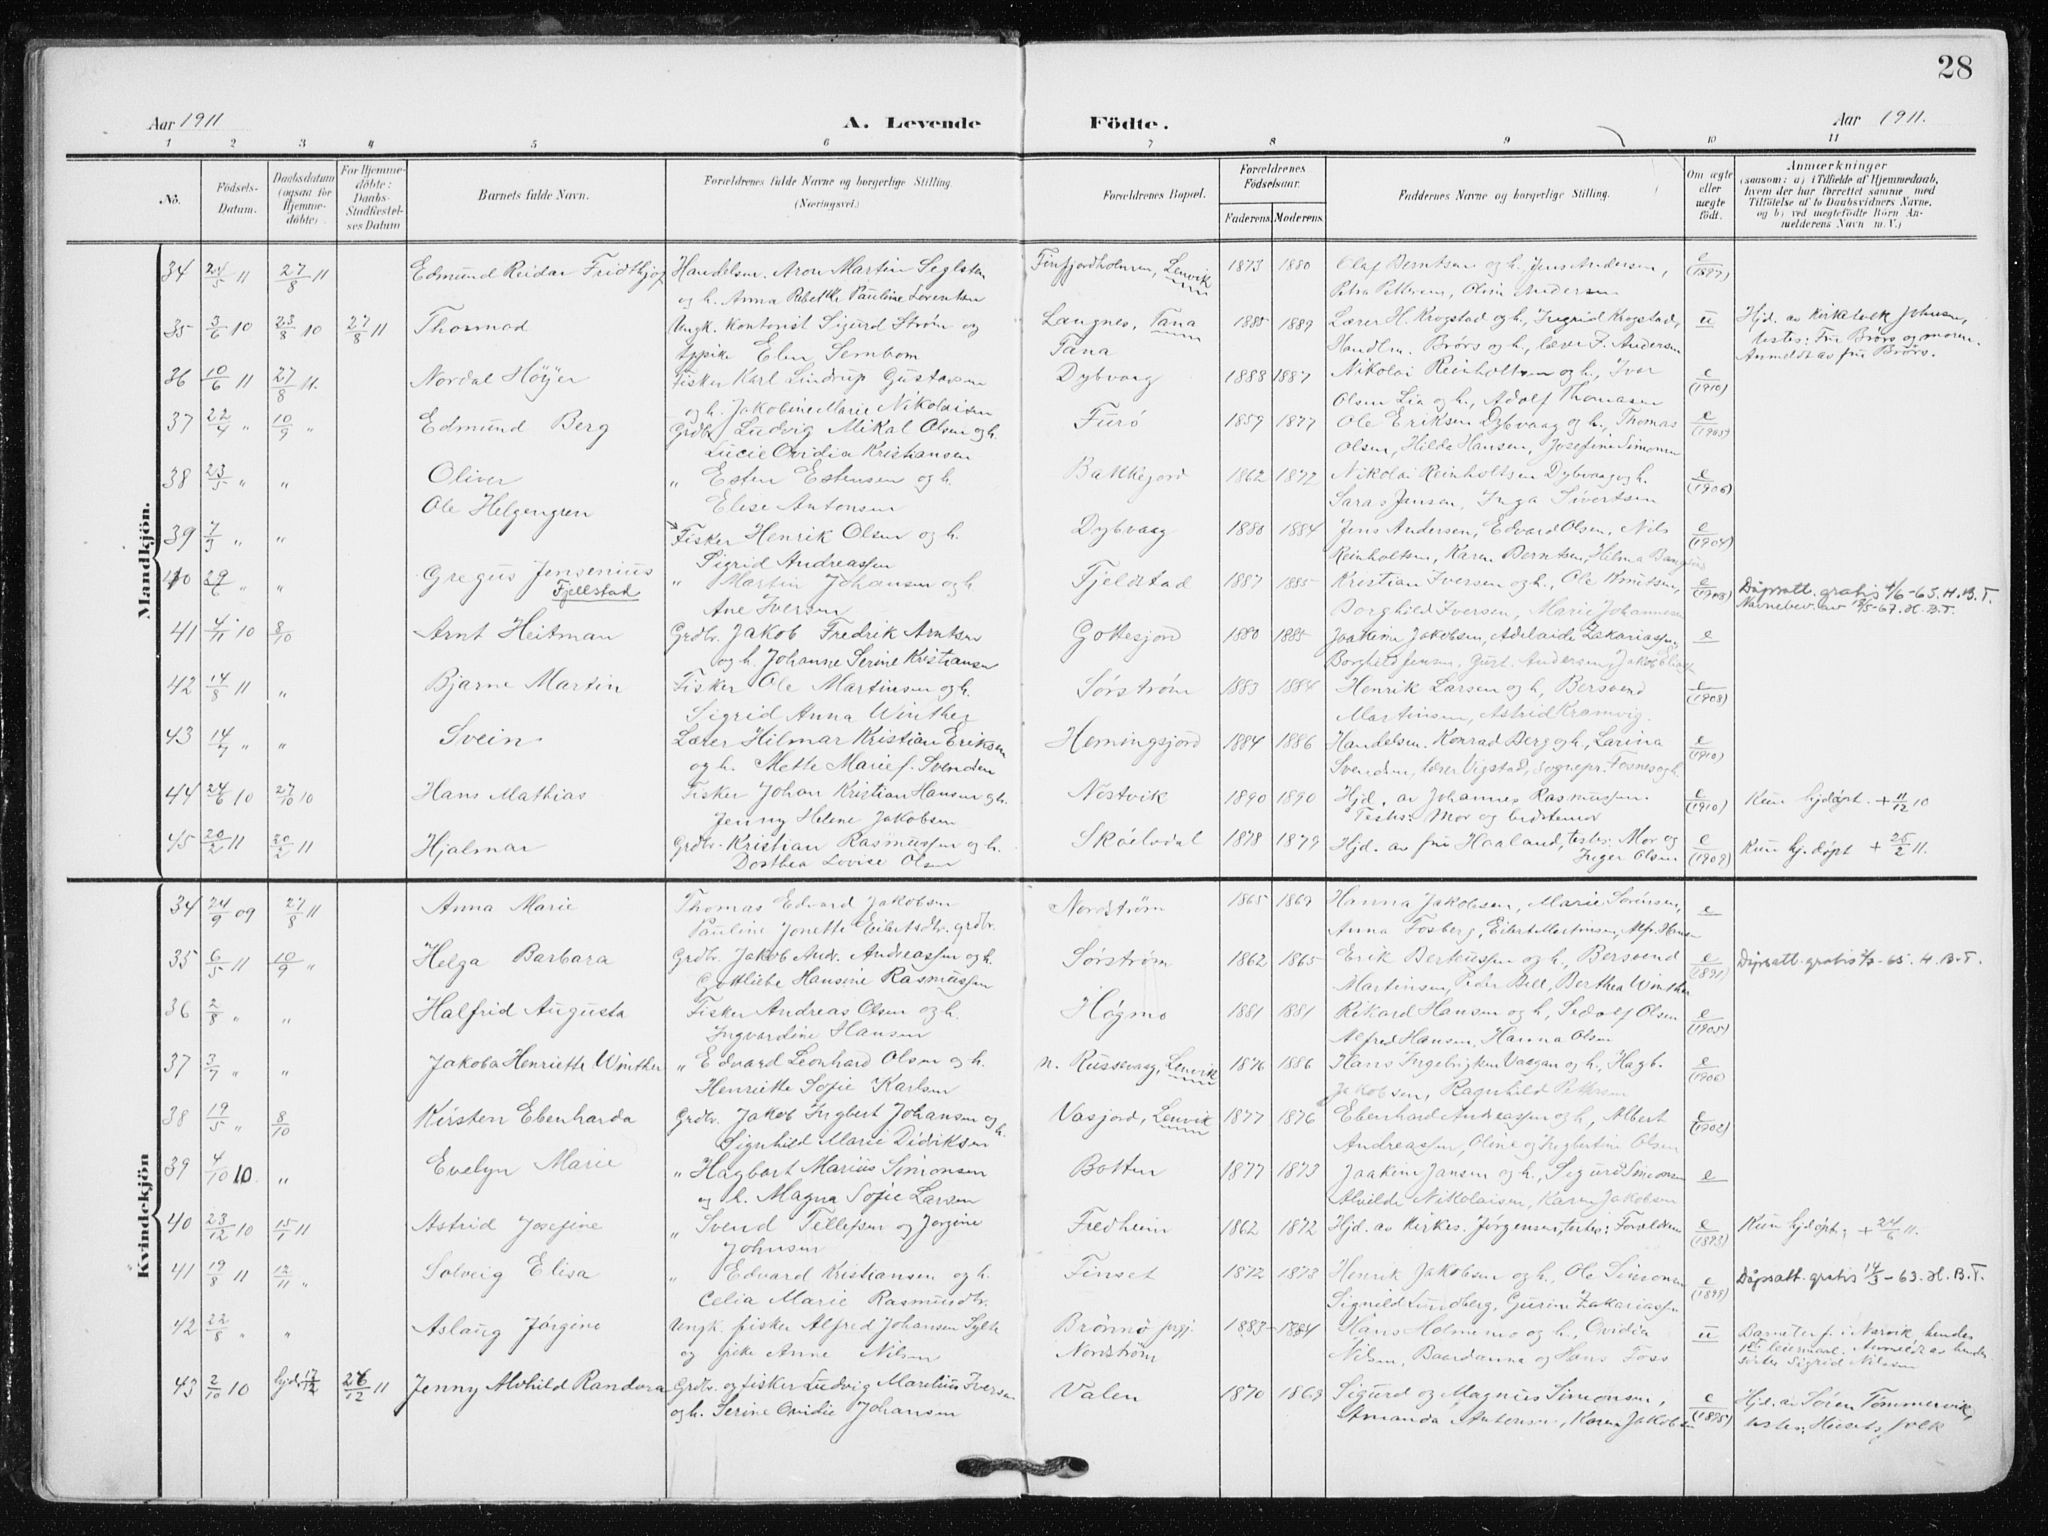 28
Aar 1911
A. Levende
Födte.
Aar 1911.
1 2 3 4 5 6 7 8 9 10 11
No.
Födsels-Datum.
Daabsdatum (ogsaa for Hjemmedöbte)
For Hjemmedöbte: Daabs-Stadfæstelses Datum
Barnets fulde Navn.
Forældrenes fulde Navne og borgerlige Stilling
(Næringsvei.)
Forældrenes Bopæl.
Forældrenes Födselsaar.
Faderens. Moderens.
Faddernes Navne og borgerlige Stilling.
Om ægte eller uægte födt.
Anmærkninger
(saasom: a) i Tilfælde af Hjemmedaab, hvem der har forrettet samme, med Tilföielse af to Daabsvidners Navne, og b) ved uægtefödte Börn Anmelderens Navn m. V.)
Mandkjön.
34 24/5 11 27/8 11 Edmund Reidar Fridthjof Handelsm. Aron Martin Seglsten Finfjordholmen, Lenvik 1873 1880 Olaf Berntsen og h. Jens Andersen, e
og h. Anna Rebekk. Pauline Lorentsen Petra Pettersen, Olina Andersen (1897)
35 3/6 10 23/8 10 27/8 11 Thormod Ungk. Kontorist Sigurd Strøm og Langnes, Tana 1885 1889 Lærer H. Krogstad og h., Ingrid Krogstad, u Hjd. av kirketolk Johnsen,
pike Elen Sembom Tana Handlm. Brørs og h., F. Andersen testes: Fru Brørs og moren.
Anmeldt av fru Brørs.
36 10/6 11 27/8 11. Nordal Höyer Fisker Karl Lindrup Gustavsen Dybvaag 1888 1887 Nikolai Reinholtsen og h., Iver e
og h. Jakobine Marie Nikolaisen Olsen Lia og h., Adolf Thomasen (1910)
37 22/4 " 10/9 " Edmund Berg Grdbr. Ludvig Mikal Olsen og h. Furö 1859 1877 Ole Eriksen Dybvaag og h., Thomas e
Lucie Ovidia Kristiansen Olsen, Hilda Hansen, Josefine Simonsen (1905)
38 23/5 " " Oliver " Esten Estensen og h. Bakkejord 1862 1872 Nikolai Reinholtsen Dybvaag og h. e
Elise Antonsen Saras Jensen, Inga Sivertsen (1906)
39 7/3 " " Ole Helgengren Fisker Henrik Olsen og h. Dybvaag 1880 1884 Jens Andersen, Edvard Olsen, Nils e
Sigrid Andreassen Reinholtsen, Karen Berntsen, Hilma (1904)
40 29/ " " Gregus Jensenius Fjellstad " Martin Johansen og h Fjeldstad 1887 1885 Kristian Iversen og h., Ole e Dåpsatt. gratis 4/6-65. H.B.T.
Ane Iversen Borghild Iversen, Marie Johannesen (1908) Navnebev. av 12/5-67. H.B.T.
41 4/11 10 8/10 Arnt Heitman Grdbr. Jakob Fredrik Arntsen Gottesjord 1880 1885 Joakim Jakobsen, Adelaide Zakariassen, e
og h. Johanne Serine Kristiansen Borghild Jensen, Gust. Andersen, Jakob
42 14/8 11 " Bjarne Martin Fisker Ole Martinsen og h. Sørstrøm 1883 1884 Henrik Larsen og h., Bersvend e
Sigrid Anna Winther Martinsen, Astrid Kramvig. (1908)
43 14/7 " " Svein Lærer Hilmar Kristian Eriksen Hemingsjord 1884 1886 Handelsm. Konrad Berg og h., Larina e
og h. Mette Marie f. Svendsen Svendsen, lærer Vigstad, sognepr. Fosnes og h. (1910)
44 24/6 10 27/10 10 Hans Mathias Fisker Johan Kristian Hansen og h. Nöstvik 1890 1890 Hjd. av Johannes Rasmussen. e Kun hjdöpt. + 11/12 10
Jenny Helene Jakobsen Testes: Mor og bedstemor (1910)
45 20/2 11 20/2 11 Hjalmar Grdbr. Kristian Rasmussen og h. Skåelvdal 1878 1879 Hjd. av fru Haaland, testes: Mor og e Kun hj. döpt + 25/2 11.
Dorthea Lovise Olsen Inger Olsen (1909)
Kvindekjön
34 24/9 09 27/8 11 Anna Marie Thomas Edvard Jakobsen Nordstrøm 1865 1869 Hanna Jakobsen, Marie Sørensen, e
Pauline Jonette Eilertsdtr. grdbr. Anna Fosberg, Eilert Martinsen, Alfr. Hansen
35 6/5 11 10/9 " Helga Barbara Grdbr. Jakob Andr. Andreassen og h. Sørstrøm 1862 1865 Erik Berteussen og h., Bersvend e Dåpsatt. gratis -65. H.B.T.
Gotliebe Hansine Rasmussen Martinsen, Peder Bell, Berthea Winther (1891)
36 2/8 " " Halfrid Augusta Fisker Andreas Olsen og h. Høgmo 1881 1881 Rikard Hansen og h., Sedolf Olsen e
Ingvardine Hansen Alfred Hansen, Hanna Olsen (1905)
37 3/7 " " Jakoba Henriette Winther " Edvard Leonhard Olsen og h. n. Russevaag, Lenvik 1876 1886 Hans Ingebrigtsen Vaagan og h., Hagb. e
Henriette Sofie Karlsen Jakobsen, Ragnhild Pettersen (1906)
38 19/5 " 8/10 Kirsten Ebenharda Grdbr. Jakob Ingbert Johansen og Vasjord, Lenvik 1877 1876 Ebenhard Andreassen og h., Albert e
h. Signhild Marie Didriksen Andreassen, Oline og Ingbertine Olsen (1902)
39 4/10 10. " Evelyn Marie " Hagbart Marius Simonsen Botten 1877 1873 Joakim Jansen og h., Sigurd Simonsen e
og h. Magna Sofie Larsen Alvilde Nikolaisen, Karen Jakobsen
40 23/12 10 15/1 11 Astrid Josefine " Svend Tellefsen og Jørgine Fredheim 1862 1872 Hjd. av kirkes. Jørgensen, testes: Forældrene e Kun hjdöpt; + 24/6 11.
Johnsen (1893)
41 19/8 11 12/11 " Solveig Elisa " Edvard Kristiansen og h. Finset 1872 1878 Henrik Jakobsen og h., Ole Simonsen e Dåpsatt. gratis 14/3-63. H.B.T.
Celia Marie Rasmusdtr. Signild Lundberg, Gurine Zakariassen (1898)
42 22/8 " " Aslaug Jørgine Ungk. fisker Alfred Johansen Sylte Brönnö pgj 1883 - 1884 Hans Holmemo og h., Ovidia u Barnet er f. i Narvik, hendes
og pike Anne Nilsen Nordstrøm Nilsen, Baardanna og Hans Foss 1ste leiermaal. Anmeldt av hendes
søster Sigrid Nilssen
43 2/10 10 hjd. 13/12 26/12 11 Jenny Alvhild Randora Grdbr. og fisker Ludvig Marelius Iversen Valen 1870 1869 Sigurd og Magnus Simonsen, e Hjd. av Søren Tømmervik,
og h. Serine Ovidie Johansen Amanda Antonsen, Karen Jakobsen (1895) testes: Husets folk